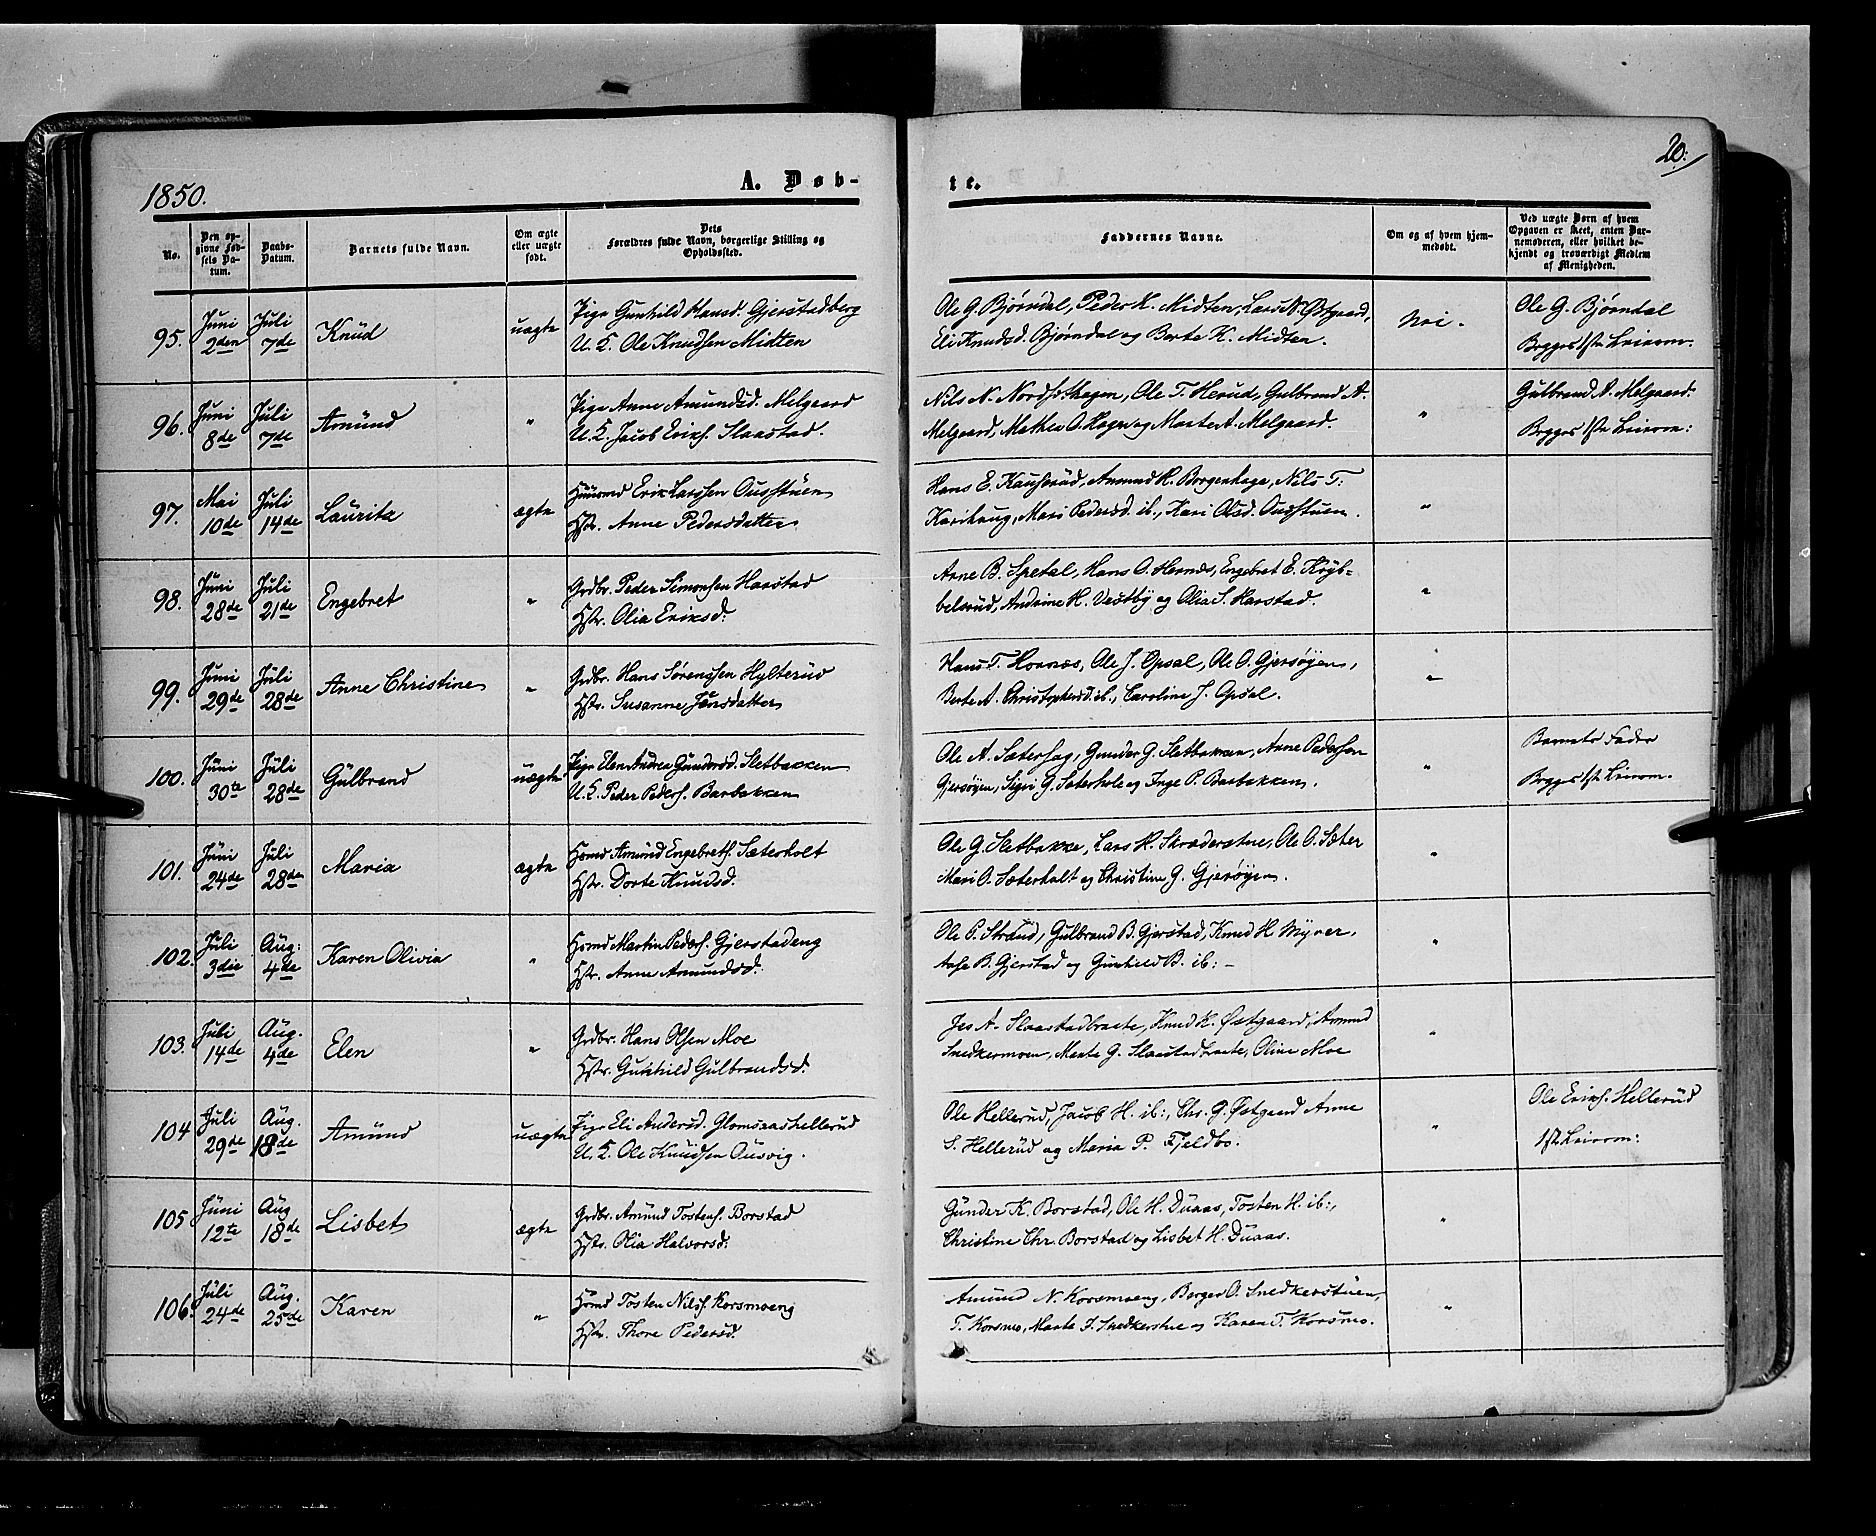 20.
1850.
A. Døb-
te.
No.
Den opgivne Fødsels Datum.
Daabs-Datum.
Barnets fulde Navn.
Om ægte eller uægte født.
Dets Forældres fulde Navn, borgerlige Stilling og Opholdssted.
Faddernes Navne.
Om og af hvem hjemmedøbt.
Ved uægte Børn af hvem Opgaven er skeet, enten Barnemoderen, eller hvilket bekjendt og troværdigt Medlem af Menigheden.
95. Juni 2den Juli 7de Knud uægte
Pige Gunhild Hansd. Gjerstadberg
U. K. Ole Knudsen Midten
Ole G. Bjørndal, Peder K. Midten, Lars N. Østgaard,
Eli Knudsd. Bjørndal og Berte K. Midten.
Nei.
Ole G. Bjørndal
Begges 1ste Leierm.
96. Juni 8de Juli 7de Amund "
Pige Anne Amundsd. Melgaard
U. K. Jacob Eriks. Slaastad.
Nils N. Nordsthagen, Ole T. Herud, Gulbrand A.
Melgaard, Mathea O. Hagen og Marte A. Melgaard.
"
Gulbrand A. Melgaard.
Begges 1ste Leierm:
97. Mai 10de Juli 14de Lauritz ægte
Huusmd Erik Larssen Ousstuen
Hstr. Anne Pedersdatter
Hans E. Kauserud, Amund H. Borgenhage, Nils T.
Karihaug, Mari Pedersd. ib., Kari Olsd. Ousstuen.
"
98. Juni 28de Juli 21de Engebret "
Grdbr. Peder Simonsen Harstad
Hstr. Olia Eriksd:
Arne B. Spetal, Hans O. Hernæs, Engebret E. Kryb-
belsrud, Andrine H. Vestby og Olia S. Harstad.
"
99. Juni 29de Juli 28de Anne Christine "
Grdbr. Hans Sørenssen Hylterud
Hstr. Susanne Jensdatter
Hans T. Hornæs, Ole J. Opsal, Ole O. Gjersøyen,
Berte A. Christophersd. ib., Caroline J. Opsal.
"
100. Juni 30te Juli 28de Gulbrand uægte
Pige Elen Andrea Gundersd. Sletbakken
U. K. Peder Peders. Barbakken
Ole A. Sæterhag, Gunder G. Sletbakken, Anne Pedersen
Gjersøyen, Sigri G. Sæterhole og Inge P. Barbakken.
"
Barnets Fader
Begges 1ste Leierm.
101. Juni 24de Juli 28de Maria ægte
Hsmd Amund Engebrets. Sæterholt
Hstr. Dorte Knudsd.
Ole G. Sletbakke, Lars H. Skræderstue, Ole O. Sæter
Mari O. Sæterholt og Christine G. Gjersøyen.
"
102. Juli 3die Aug: 4de Karen Olivia "
Hsmd Martin Peders. Gjerstadeng
Hstr. Anne Amundsd:
Ole P. Strand, Gulbrand B. Gjerstad, Knud H. Myrer,
Aase B. Gjerstad og Gunhild B. ib: -
"
103. Juli 14de Aug. 4de Elen "
Grdbr. Hans Olsen Moe
Hstr. Gunhild Gulbrandsd.
Jes A. Slaastadbraate, Knud K. Østgaard, Amund
Snedkermoen, Marte G. Slaastadbraate, Oline Moe
"
104 Juli 29de Aug. 18de Amund uægte
Pige Eli Andersd. Glomsaashellerud
U. K. Ole Knudsen Ousvig.
Ole Hellerud, Jacob H. ib:, Chr. G. Østgaard Anne
S. Hellerud og Maria P. Fjeldbo.
"
Ole Eriks. Hellerud
1ste Leierm:
105 Juni 12te Aug 18de Lisbet ægte
Grdbr. Amund Tostens. Borstad
Hstr. Olia Halvorsd.
Gunder K. Borstad, Ole H. Duaas, Tosten H. ib:,
Christine Chr. Borstad og Lisbet H. Duaas.
"
106. Juli 24de Aug. 25de Karen "
Hsmd Tosten Nils. Korsmoeng
Hstr. Thore Pedersd.
Amund N. Korsmoeng, Berger O. Snedkerstuen,
T. Korsmo, Marte J. Snedkerstue og Karen T. Korsmo.
"